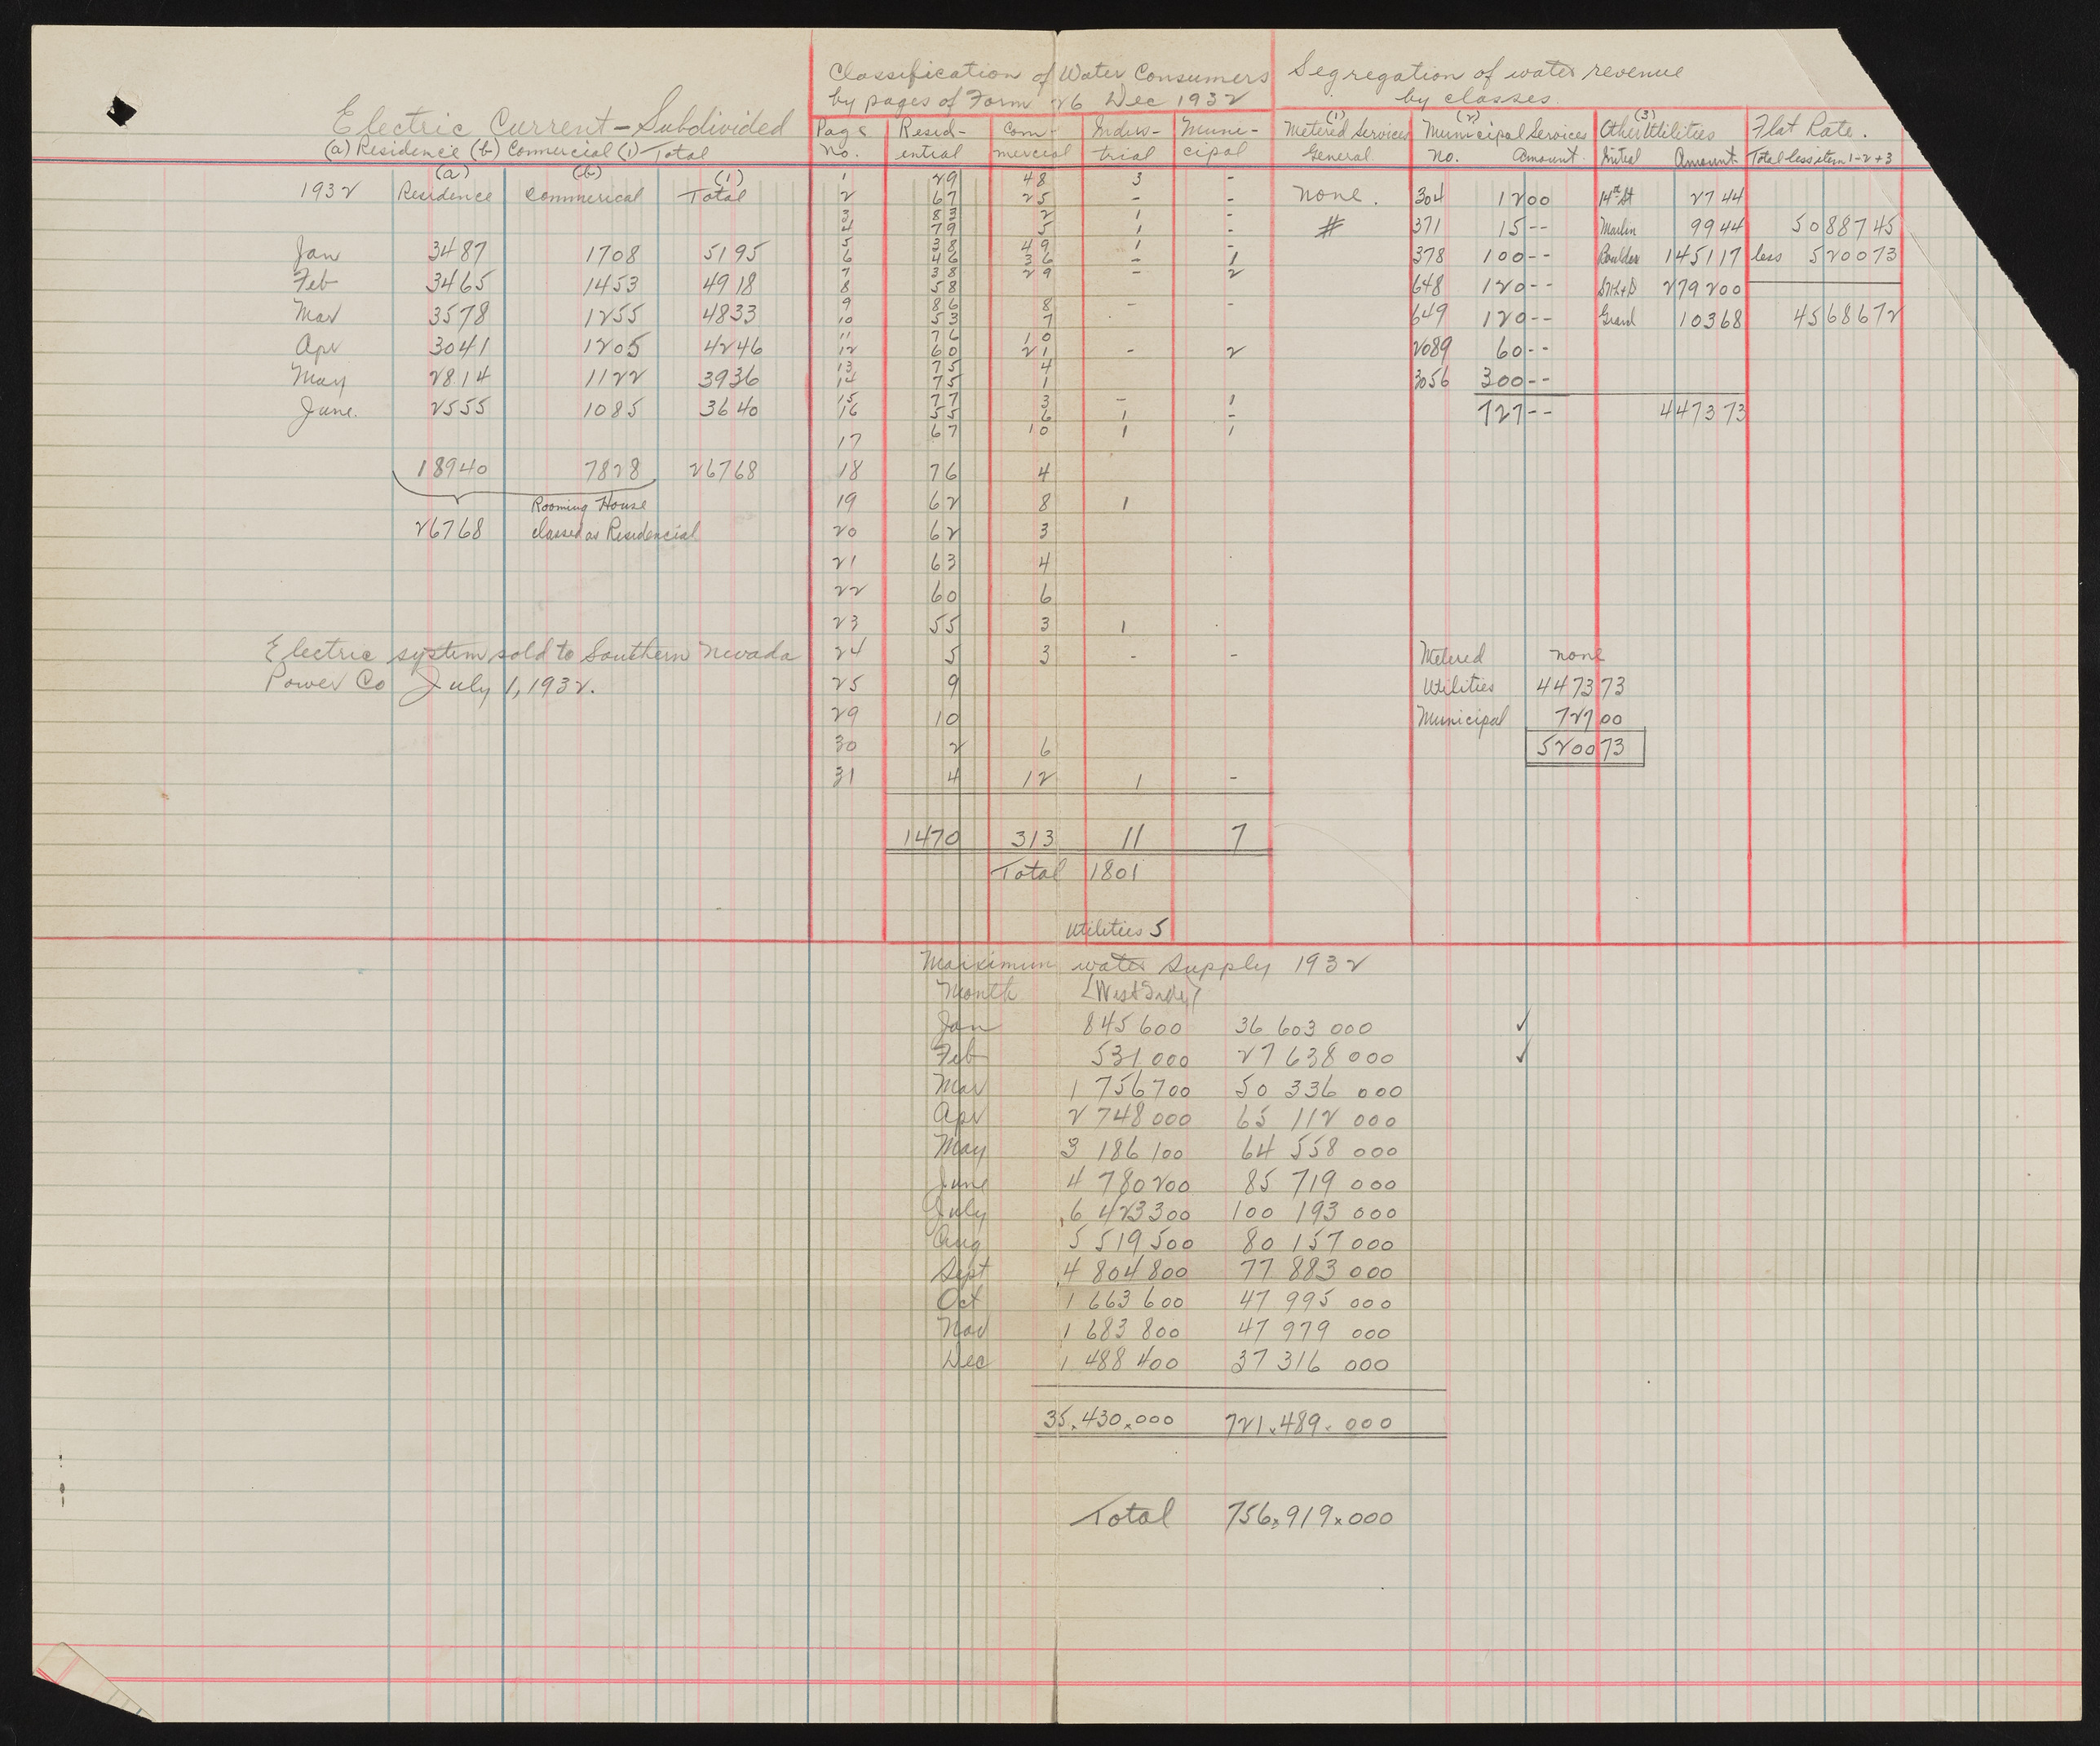 Electric Current - Subdivided
(a) Residence (b) Commercial (1) Total
1932 (a) Residence (b) Commerical (1) Total
Jan 3487 1708 5195
Feb 3465 1453 4918
Mar 3578 1255 4833
Apr 3041 1205 4246
May 2814 1122 3936
June. 2555 1085 3640
18940 7828 26768
26768 Rooming House
classed as Residencial
Electric system sold to Southern Nevada
Power Co July 1, 1932.
Classification of Water Consumers
by pages of Form 26 Dec 1932
Page No. Resid-ential Com-mercial Indus-trial Muni-cipal
1 29 48 3 -
2 67 25 - -
3 83 2 1 -
4 79 5 1 -
5 38 49 1 -
6 46 36 - 1
7 38 29 - 2
8 58
9 86 8 - -
10 53 7
11 76 10
12 60 21 - 2
13 75 4
14 75 1
15 77 3 - 1
16 55 6 1 -
17 67 10 1 1
18 76 4
19 62 8 1
20 62 3
21 63 4
22 60 6
23 55 3 1
24 5 3 - -
25 9
29 10
30 2 6
31 4 12 1 -
1470 313 11 7
Total 1801
Utilities 5
Segregation of water revenue
by classes.
(1) Metered Services General
(2) Municipal Services No. Amount
(3) Other Utilities Initial Amount
Flat Rate.
Total less item 1-2+3
none. 304 12 00 14th St 27 44
# 371 15 -- Marlin 99 44 50887 45
378 100 -- Boulder 1451 17 less 5200 73
648 120 -- 2792 00
649 120 -- Grand 103 68 45686 72
2089 60 --
3056 300 --
727 -- 4473 73
Metered none
Utilities 4473 73
Municipal 727 00
5200 73
Maximum water Supply 1932
Month [West Side]
Jan 845 600 36 603 000 ✓
Feb 531 000 27 638 000 ✓
Mar 1 756 700 50 336 000
Apr 2 748 000 65 112 000
May 3 186 100 64 558 000
June 4 780 200 85 719 000
July 6 423 300 100 193 000
Aug 5 519 500 80 157 000
Sept 4 804 800 77 883 000
Oct 1 663 600 47 995 000
Nov 1 683 800 47 979 000
Dec 1 488 400 37 316 000
35,430,000 721,489,000
Total 756,919,000